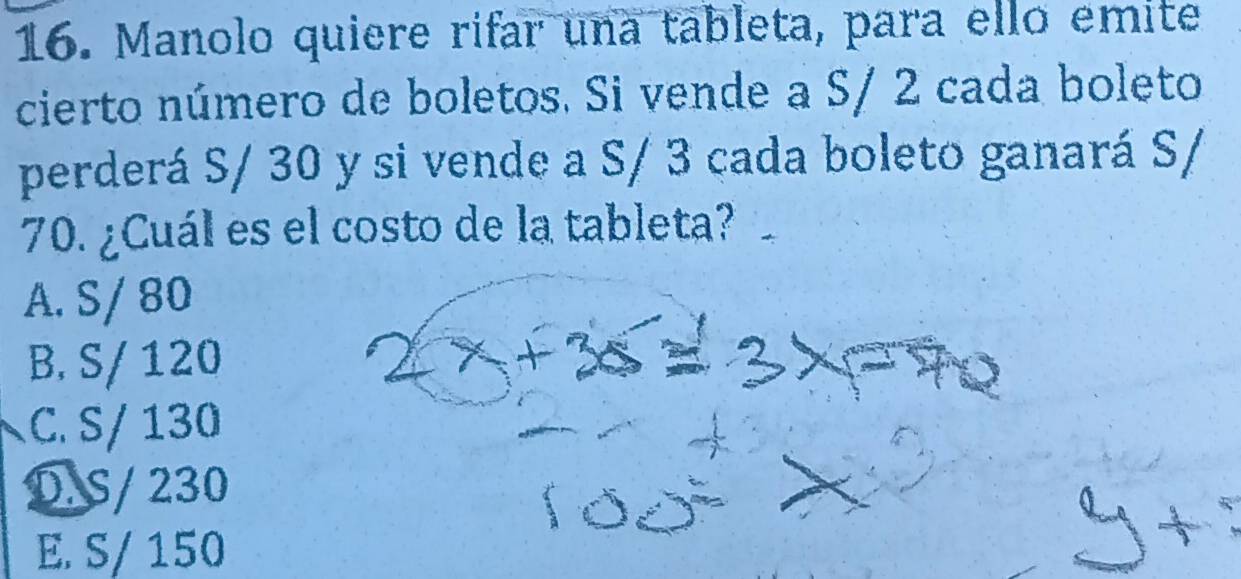 16. Manolo quiere rifar una tableta, para ello emite
cierto número de boletos. Si vende a S/ 2 cada boleto
perderá S/ 30 y si vende a S/ 3 cada boleto ganará S/
70. ¿Cuál es el costo de la tableta?
A. S/ 80
B. S/ 120
C. S/ 130
D. S/ 230
E. S/ 150
2x+30=3x-70
100=x
y+